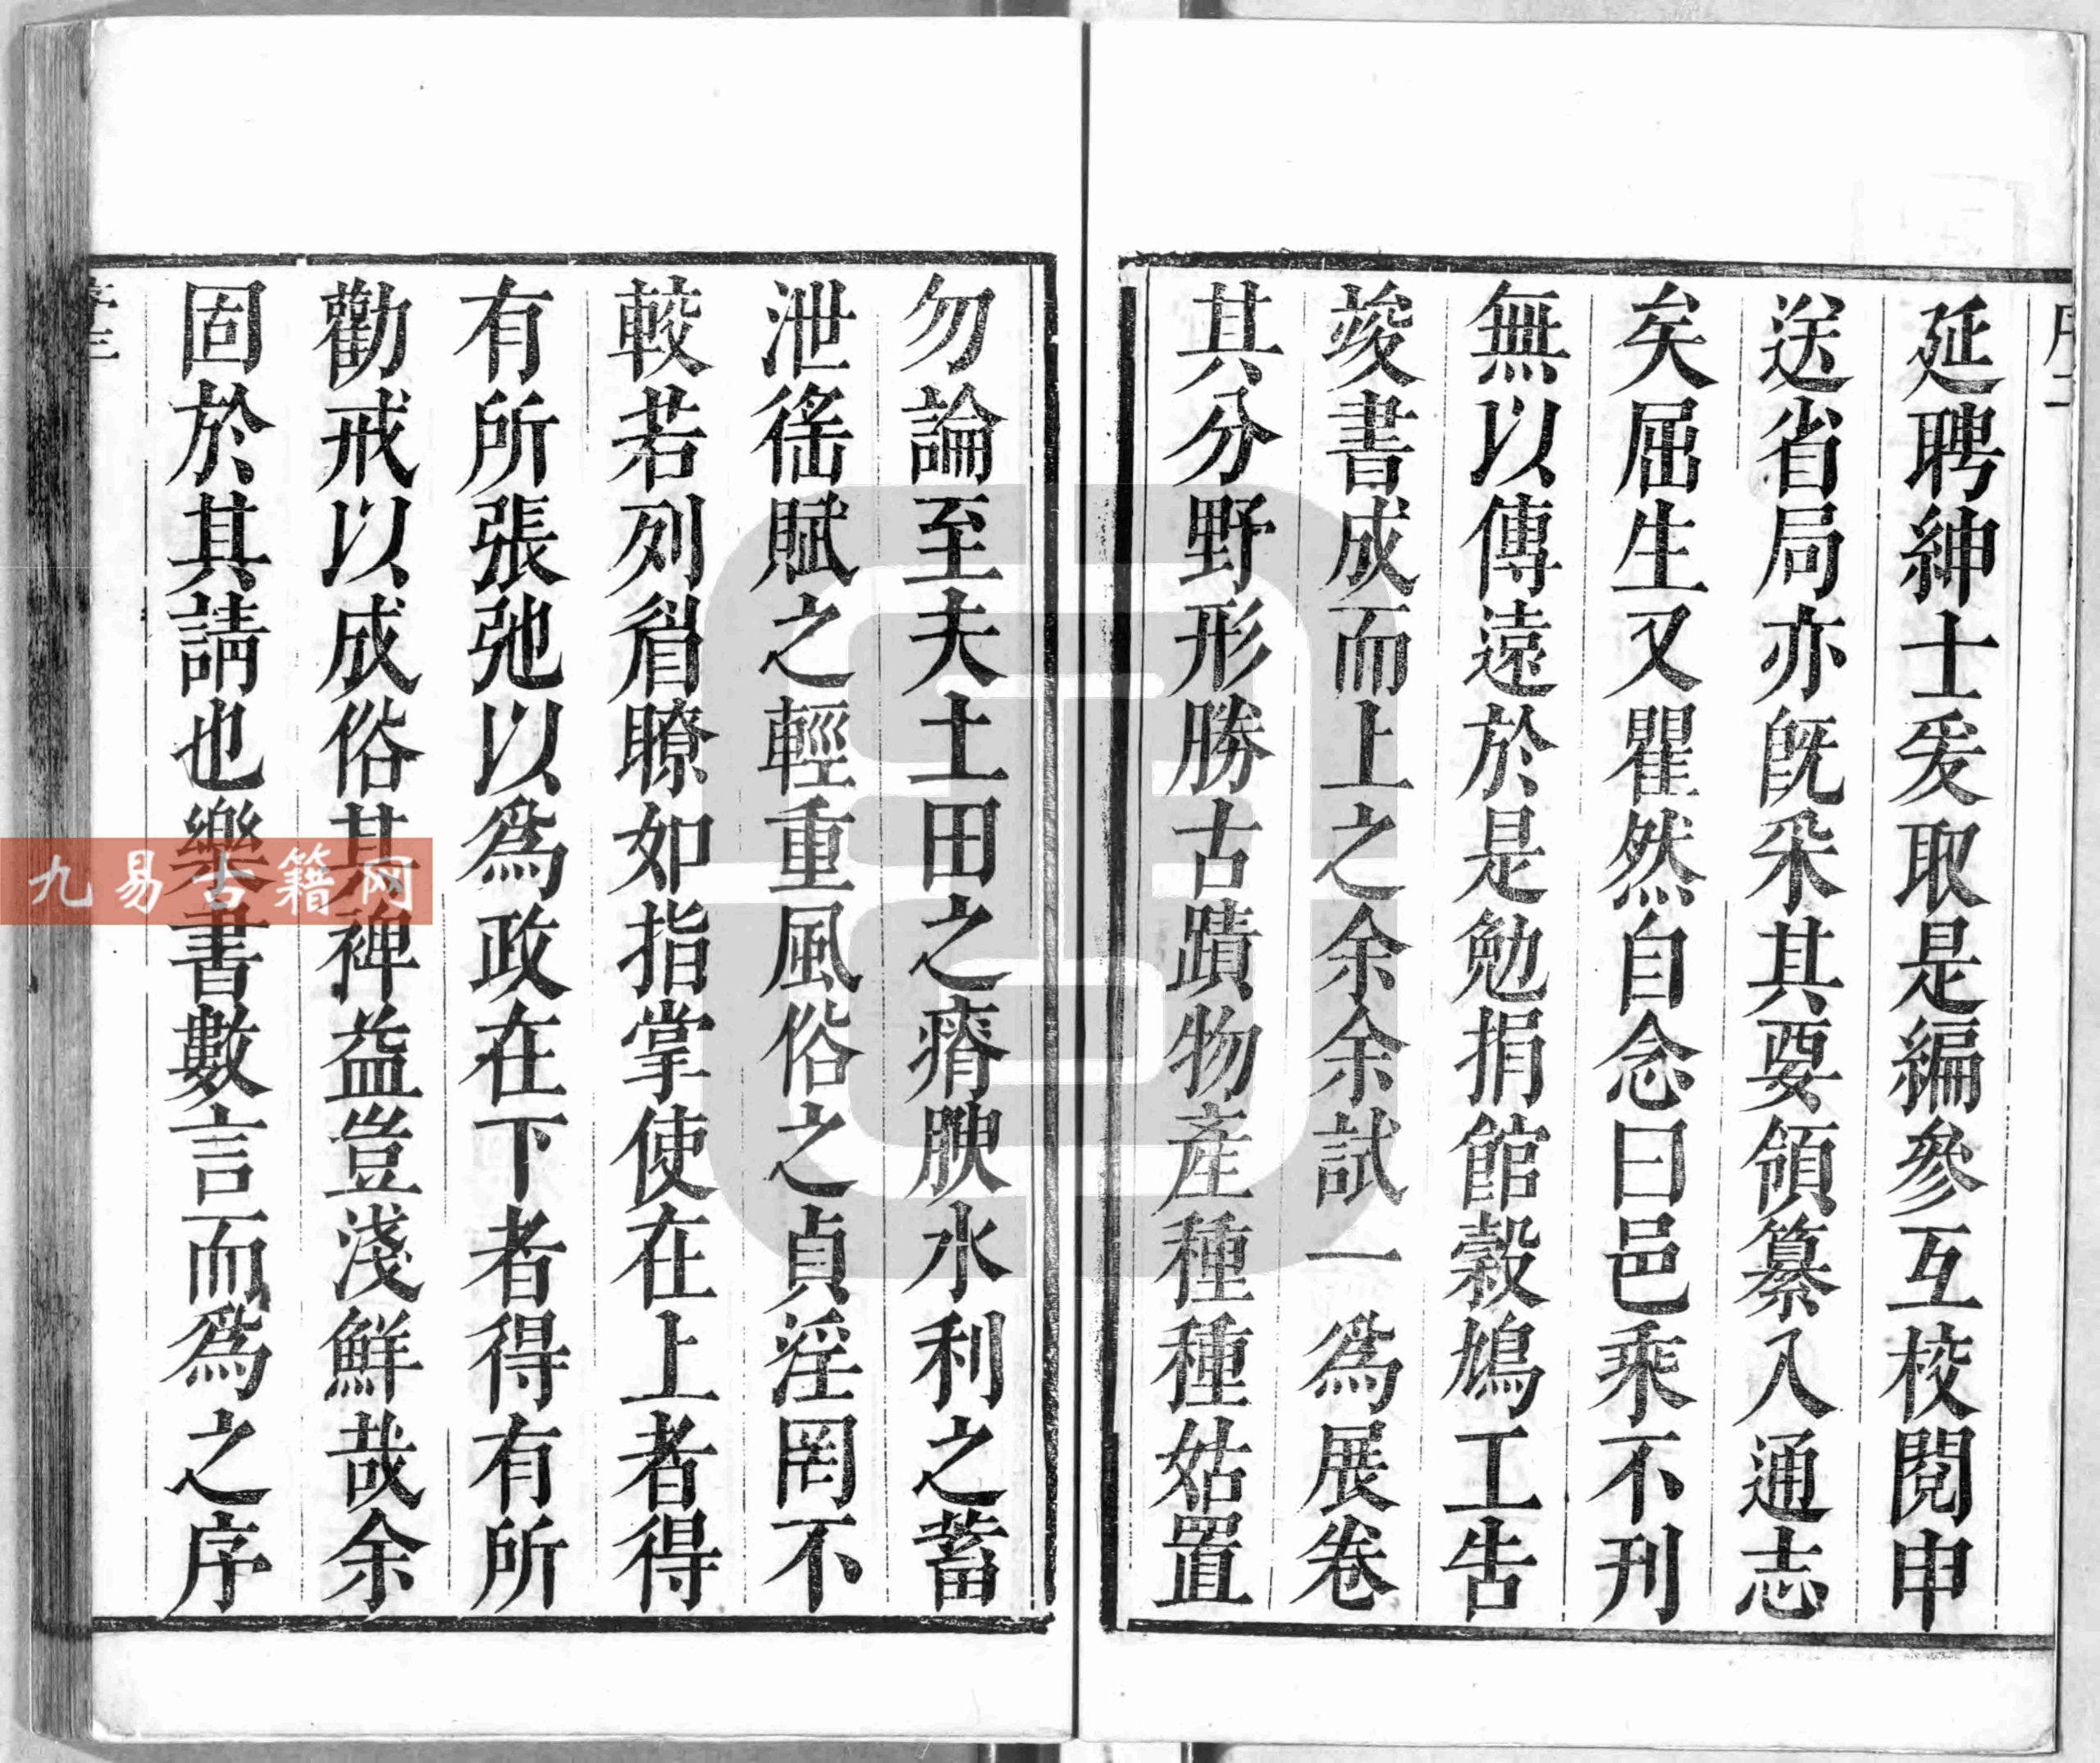 延聘紳士爰取是編參互校閱申
送省局亦旣采其要領纂入通志
矣屈生又瞿然自念曰邑乘不刊
無以傳遠於是勉捐館穀鳩工告
竣書成而上之余余試一爲展卷
其分野形勝古蹟物產種種姑置
勿論至夫土田之瘠腴水利之蓄
泄徭賦之輕重風俗之貞淫罔不
較若列眉瞭如指掌使在上者得
有所張弛以爲政在下者得有所
勸戒以成俗其裨益豈淺鮮哉余
固於其請也樂書數言而爲之序
九易古籍网